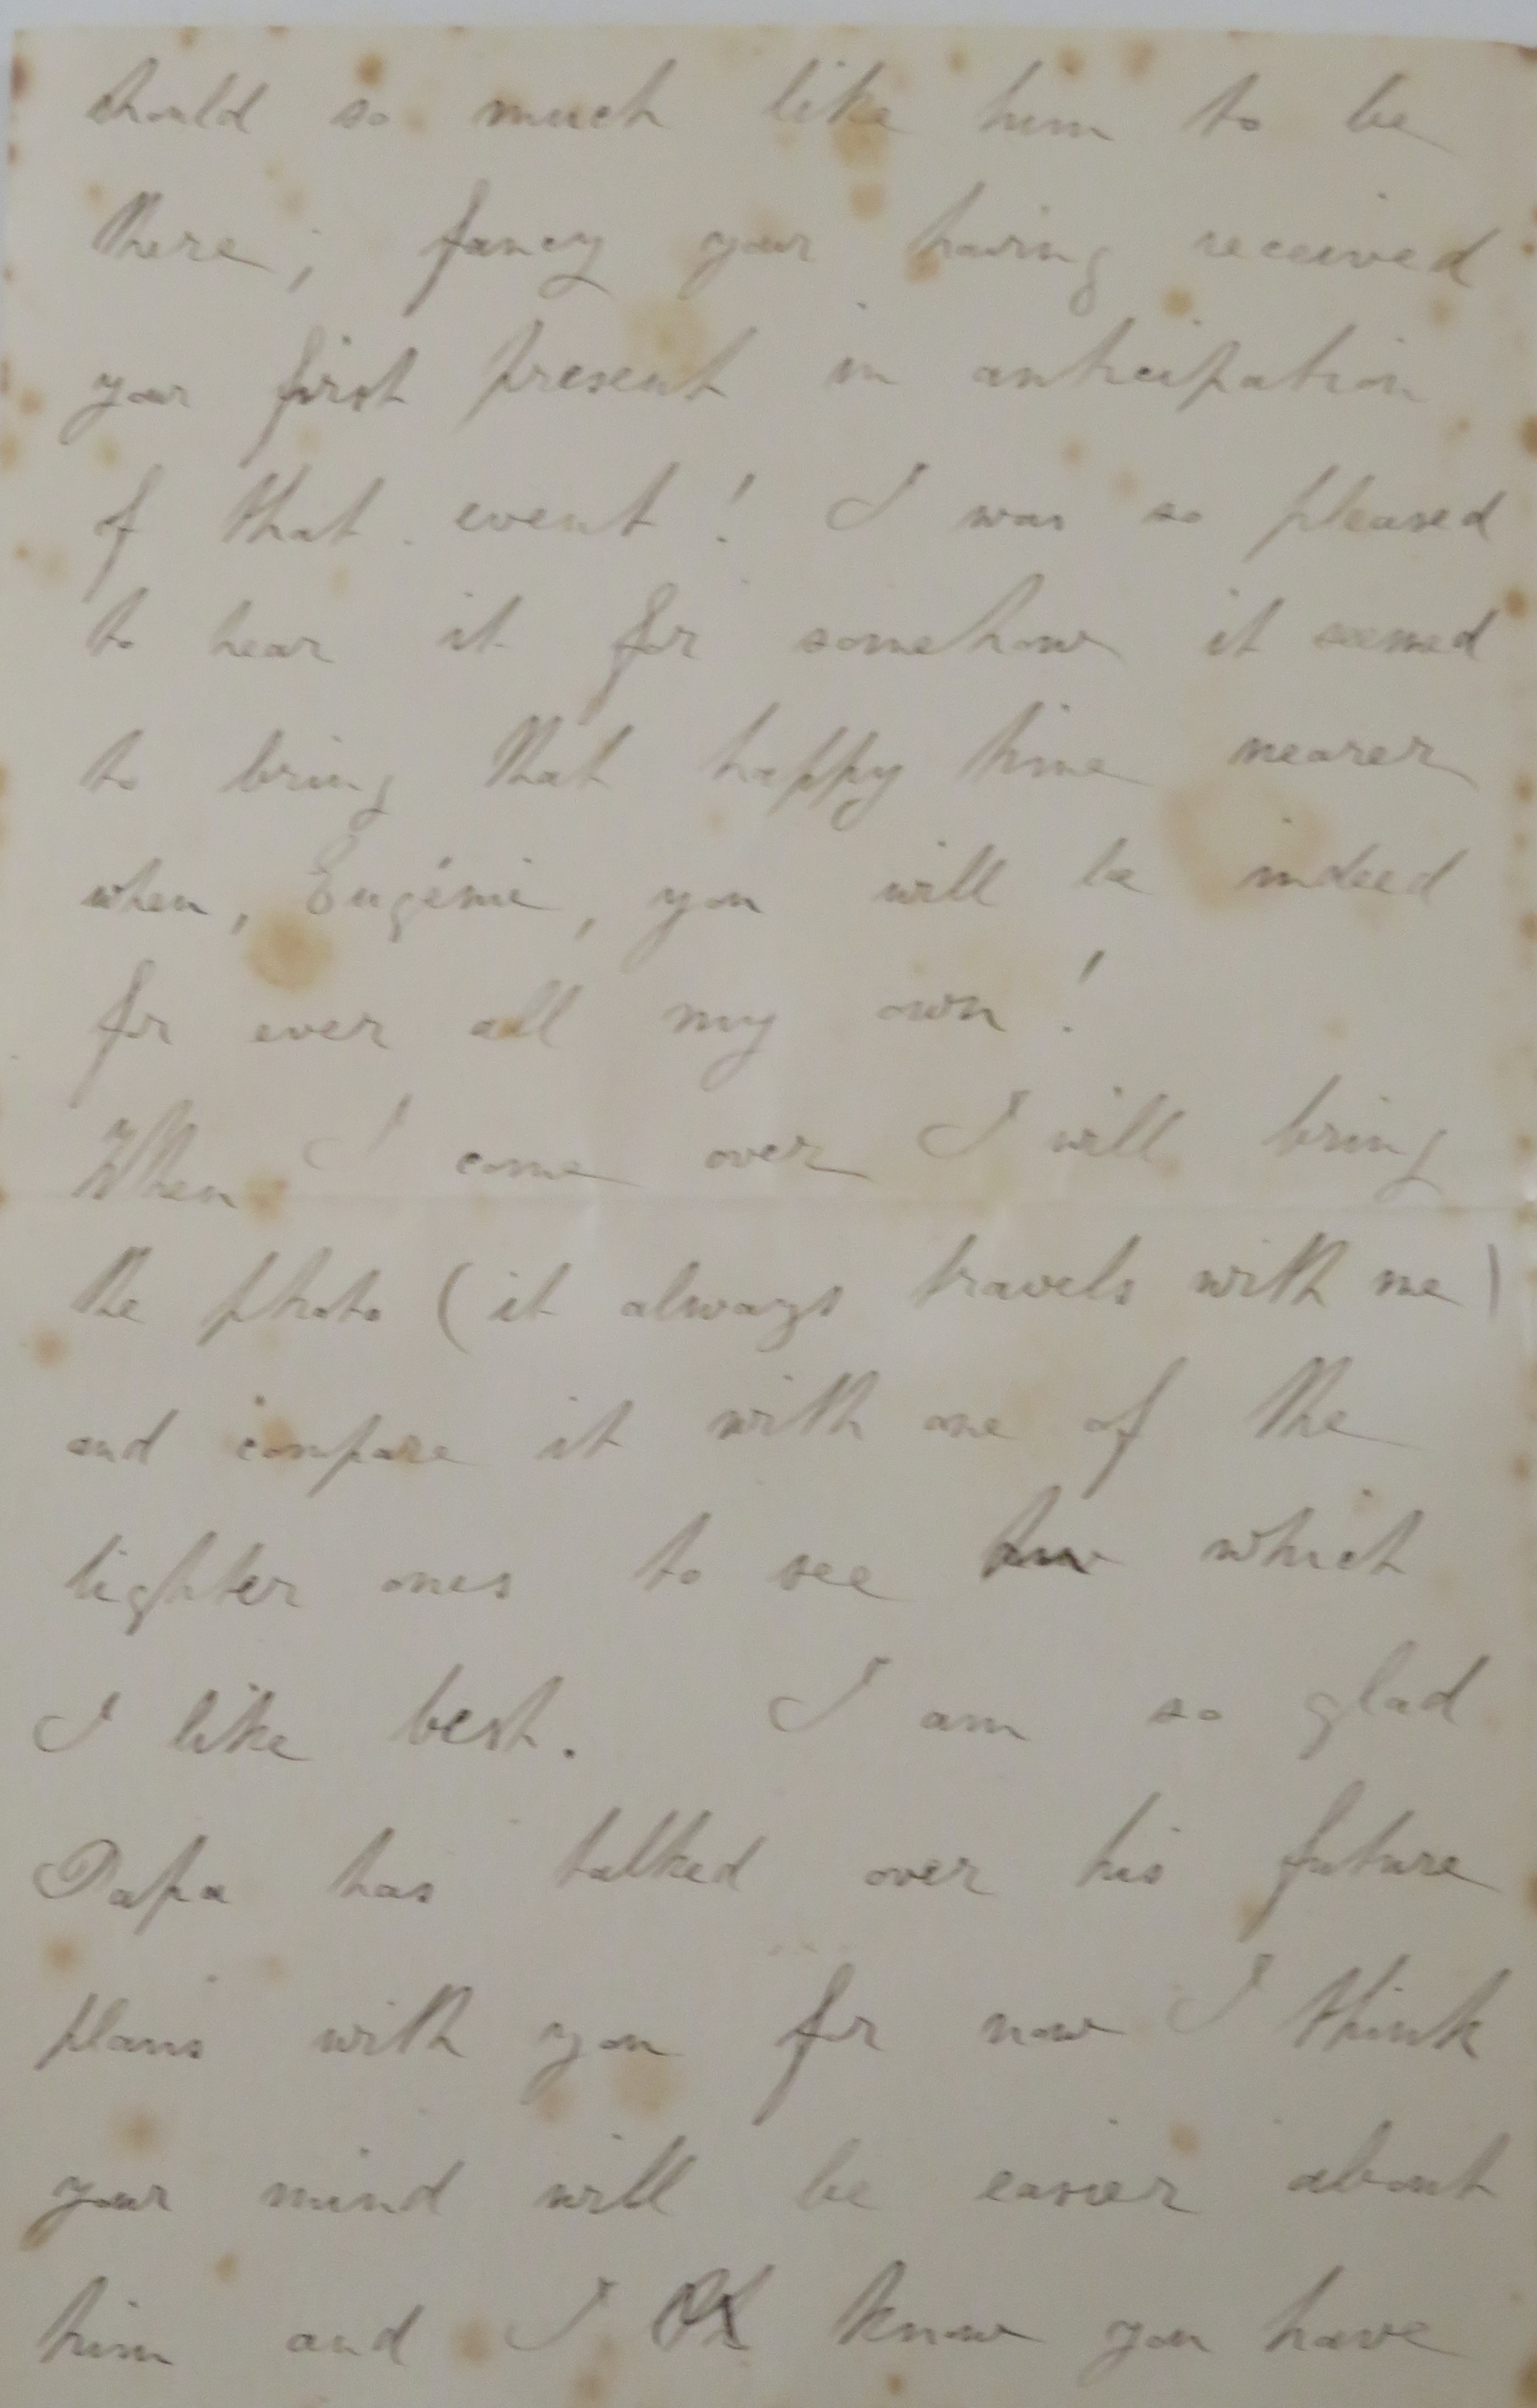 should so much like him to be
there; fancy your having received
your first present in anticipation
of that event! I was so pleased
to hear it for somehow it seemed
to bring that happy time nearer
when, Eugénie, you will be indeed
for ever all my own!
When I come over I will bring
the photo (it always travels with me)
and compare it with one of the
lighter ones to see which
I like best. I am so glad
Papa has talked over his future
plans with you for now I think
your mind will be easier about
him and I know you have